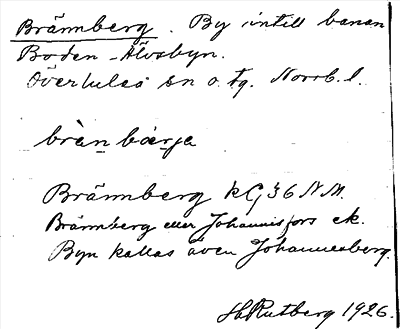 Brännberg. By intill banan
Boden - Älvsbyn.
Överluleå sn o. tg. Norrb. l.
bràn bær̨ja
Brännberg kG36 N.M.
Brännberg eller Johannisfors ek.
Byn kallas även Johannesberg.
H Rutberg 1926.